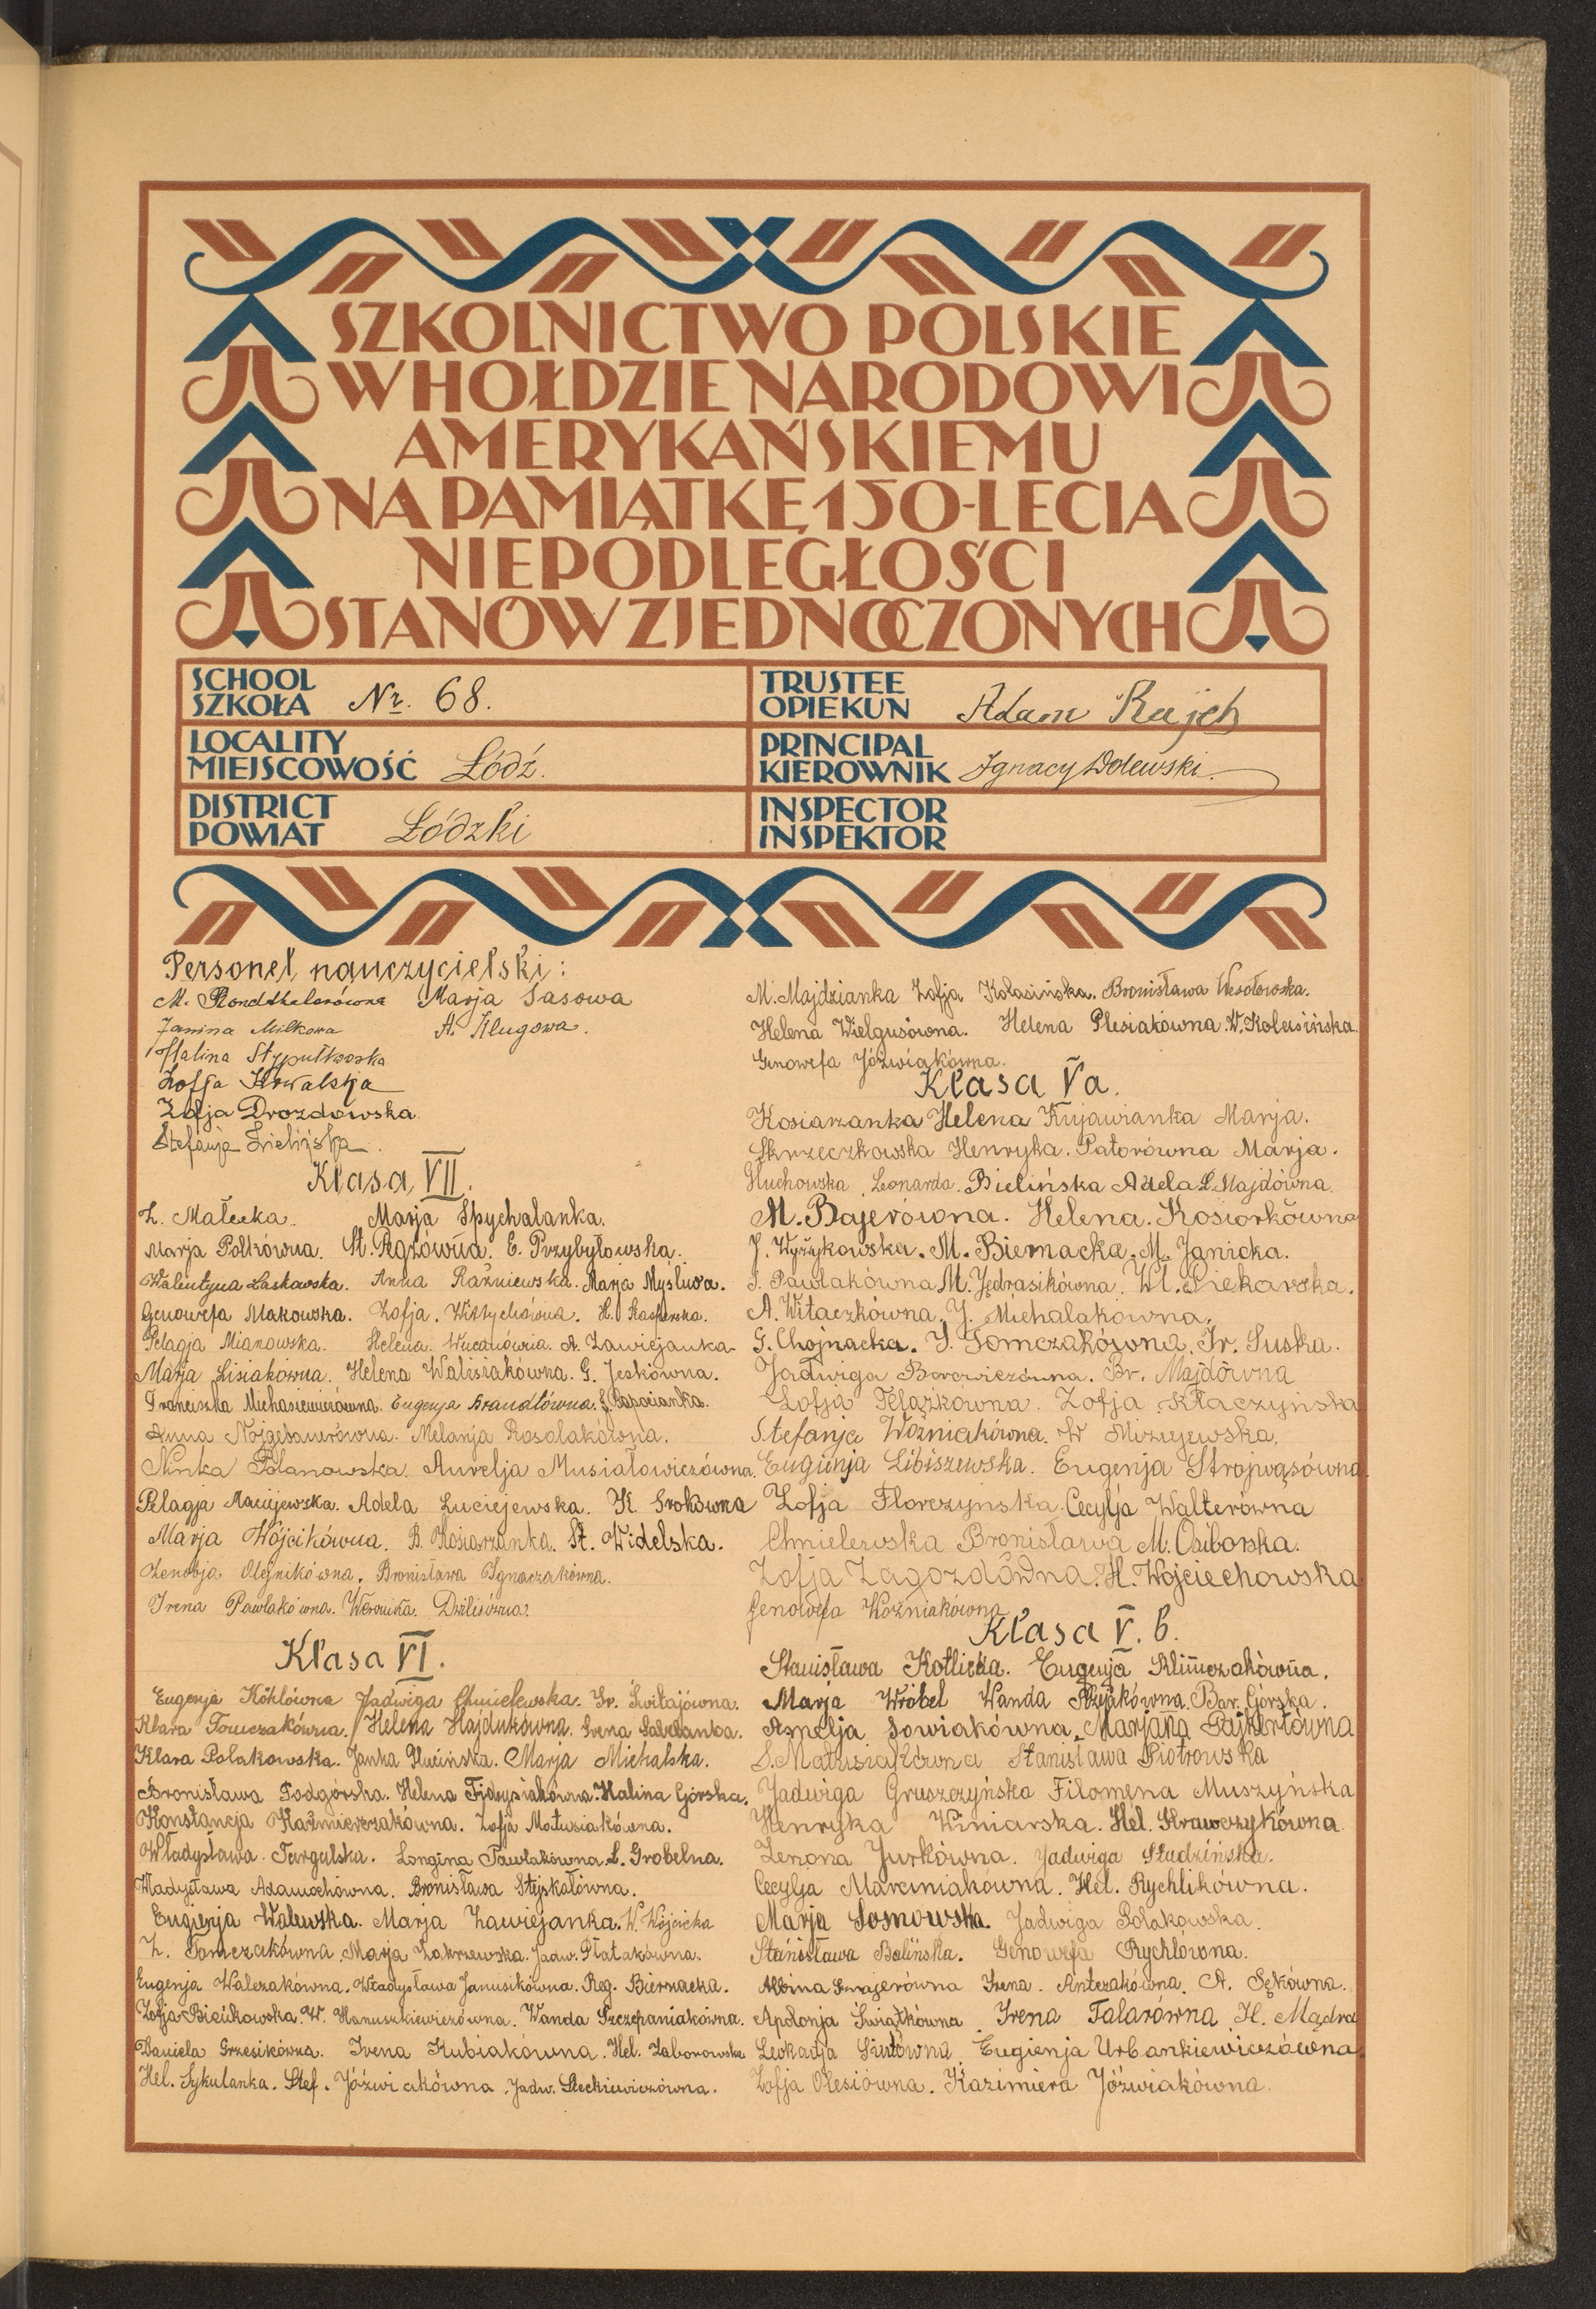 SZKOLNICTWO POLSKIE
W HOŁDZIE NARODOWI
AMERYKAŃSKIEMU
NA PAMIĄTKĘ 150-LECIA
NIEPODLEGŁOŚCI
STANÓW ZJEDNOCZONYCH
SCHOOL
SZKOŁA Nr. 68.
TRUSTEE
OPIEKUN Adam Rajch
LOCALITY
MIEJSCOWOŚĆ Łódź.
PRINCIPAL
KIEROWNIK Ignacy Dolewski
DISTRICT
POWIAT Łódzki
INSPECTOR
INSPEKTOR
Personel nauczycielski:
M. Rondthalerówna Marja Sasowa
Janina Milkowa A. Klugowa.
Halina Stypułkowska
Zofja Kowalska
Zofja Drozdowska
Stefanja Zielińska.
Klasa VII.
Z. Małecka. Marja Spychalanka.
Marja Polkówna. St. E. Przybyłowska.
Walentyna Laskowska. Anna Raźniewska. Marja Myśliwa.
Genowefa Makowska. Zofja. H. Kacperska.
Pelagja Mianowska. Helena. A. Zawiejanka
Marja Lisiakówna. Helena Walisiakówna. G. Jeskówna.
Franciszka Michasiewiczówna. Eugenja Brandtówna.
Anna Melanja Rosolakówna.
Ninka Polanowska. Aurelja Musiałowiczówna.
Pelagja Maciejewska. Adela Luciejewska. K.
Marja Wójcikówna. B. Kosiarzanka. St. Widelska.
Zenobja Olejnikówna. Bronisława Ignaczakówna.
Irena Pawlakówna. Weronika
Klasa VI.
Eugenja Köhlówna Jadwiga Chmielewska. Gr. Świtajówna.
Klara Tomczakówna. Helena Hajdukówna. Irena
Klara Polakowska. Janka Marja Michalska.
Bronisława Podgórska. Helena Halina Górska.
Konstancja Kaźmierczakówna. Zofja Matusiakówna.
Władysława Targalska. Longina Pawlakówna L. Grobelna.
Władysława Adamochówna. Bronisława Stejskałówna.
Eugienja Walewska. Marja Zawiejanka. W. Wójcicka
Z. Tomczakówna Marja Zakrzewska. Jadw. Płatakówna.
Eugenja Walczakówna. Władysława Janusikówna. Reg. Biernacka.
Zofja Bieńkowska. W. Hanuszkiewiczówna. Wanda Szczepaniakówna.
Daniela Grzesikówna. Irena Kubiakówna. Hel. Zaborowska
Hel. Sykulanka. Stef. Jóźwiakówna Jadw. Steckiewiczówna.
M. Majdzianka Zofja Kolasińska. Bronisława Wesołowska.
Helena Wielgusówna. Helena Plesiakówna. W. Kolasińska.
Genowefa Jóźwiakówna.
Klasa Va.
Kosiarzanka Helena Kujawianka Marja.
Skrzeczkowska Henryka. Patorówna Marja.
Głuchowska Leonarda. Bielińska Adela L. Majdówna.
M. Bajerówna. Helena. Kosiorkówna
J. Wyżykowska. M. Biernacka. M. Janicka.
I. Pawlakówna M. Jędrasikówna. Wł. Piekarska.
A. Witaczkówna. J. Michalakówna.
G. Chojnacka. J. Tomczakówna. Ir. Suska.
Jadwiga Borowiczówna. Br. Majdówna
Zofja Pelazkówna. Zofja Kłaczyńska
Stefanja Woźniakówna. W Mizujewska,
Eugenja Libiszewska. Eugenja Strąpągsówna
Zofja Florczyńska. Cecylja Walterówna
Chmielewska Bronisława M. Ociborska.
Zofja Zagozdówna. H. Wojciechowska
Genowefa Woźniakówna
Klasa V. b.
Stanisława Kotlicka. Eugenja Klimczakówna.
Marja Wróbel Wanda Bar. Górska.
Amelja Sowiakówna, Marjana Pajkertówna
S. Matusiakówna Stanisława Piotrowska
Jadwiga Gruszczyńska Filomena Muszyńska
Henryka Winiarska. Hel. Krawczykówna
Zenona Jurkówna. Jadwiga Studzińska.
Cecylja Marciniakówna. Hel. Rychlikówna.
Marja Sosnowska. Jadwiga Polakowska.
Stanisława Bolińska. Genowefa Rychlówna.
Albina Irena. Antczakówna. A. Sękówna.
Apolonja Świątkówna Irena Talarówna H. Mądra
Leokadja Eugienja Urbankiewiczówna
Zofja Olesiówna. Kazimiera Jóźwiakówna.